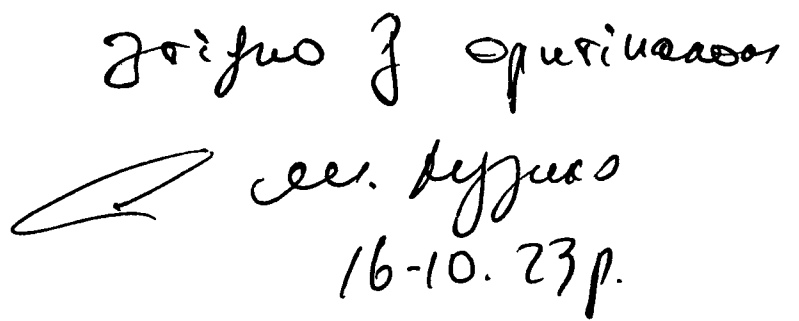 Згідно з оригіналом
М.
16-10.23р.